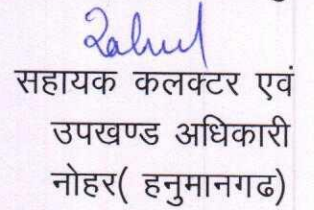 Rahul
सहायक कलक्टर एवं
उपखण्ड अधिकारी
नोहर( हनुमानगढ)